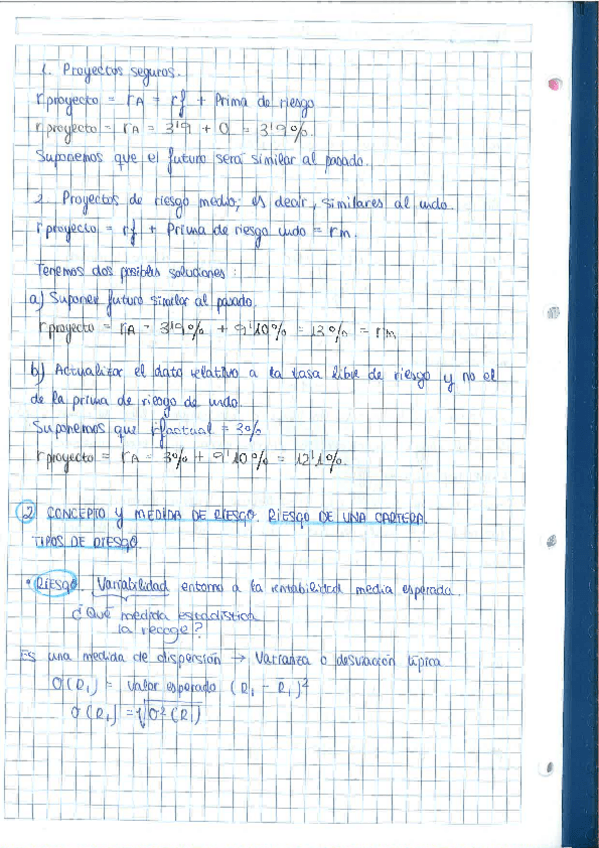 1. Proyectos seguros.
rproyecto = rA = rf + Prima de riesgo
rproyecto = rA = 3'9 + 0 = 3'9%.
Suponemos que el futuro será similar al pasado.
2. Proyectos de riesgo medio, es decir, similares al mdo.
rproyecto = rf + Prima de riesgo mdo = rm.
Tenemos dos posibles soluciones:
a) Suponer futuro similar al pasado.
rproyecto = rA = 3'9% + 9'10% = 13% = rm
b) Actualizar el dato relativo a la tasa libre de riesgo y no el
de la prima de riesgo de mdo.
Suponemos que rfactual = 3%
rproyecto = rA = 3% + 9'10% = 12'1%.
2 CONCEPTO Y MEDIDA DE RIESGO. RIESGO DE UNA CARTERA.
TIPOS DE RIESGO.
• RIESGO. Variabilidad entorno a la rentabilidad media esperada.
¿Qué medida estadística
la recoge?
Es una medida de dispersión → Varianza o desviación típica
σ(R1) = Valor esperado (R1 - R1)²
σ(R1) = √σ²(R1)